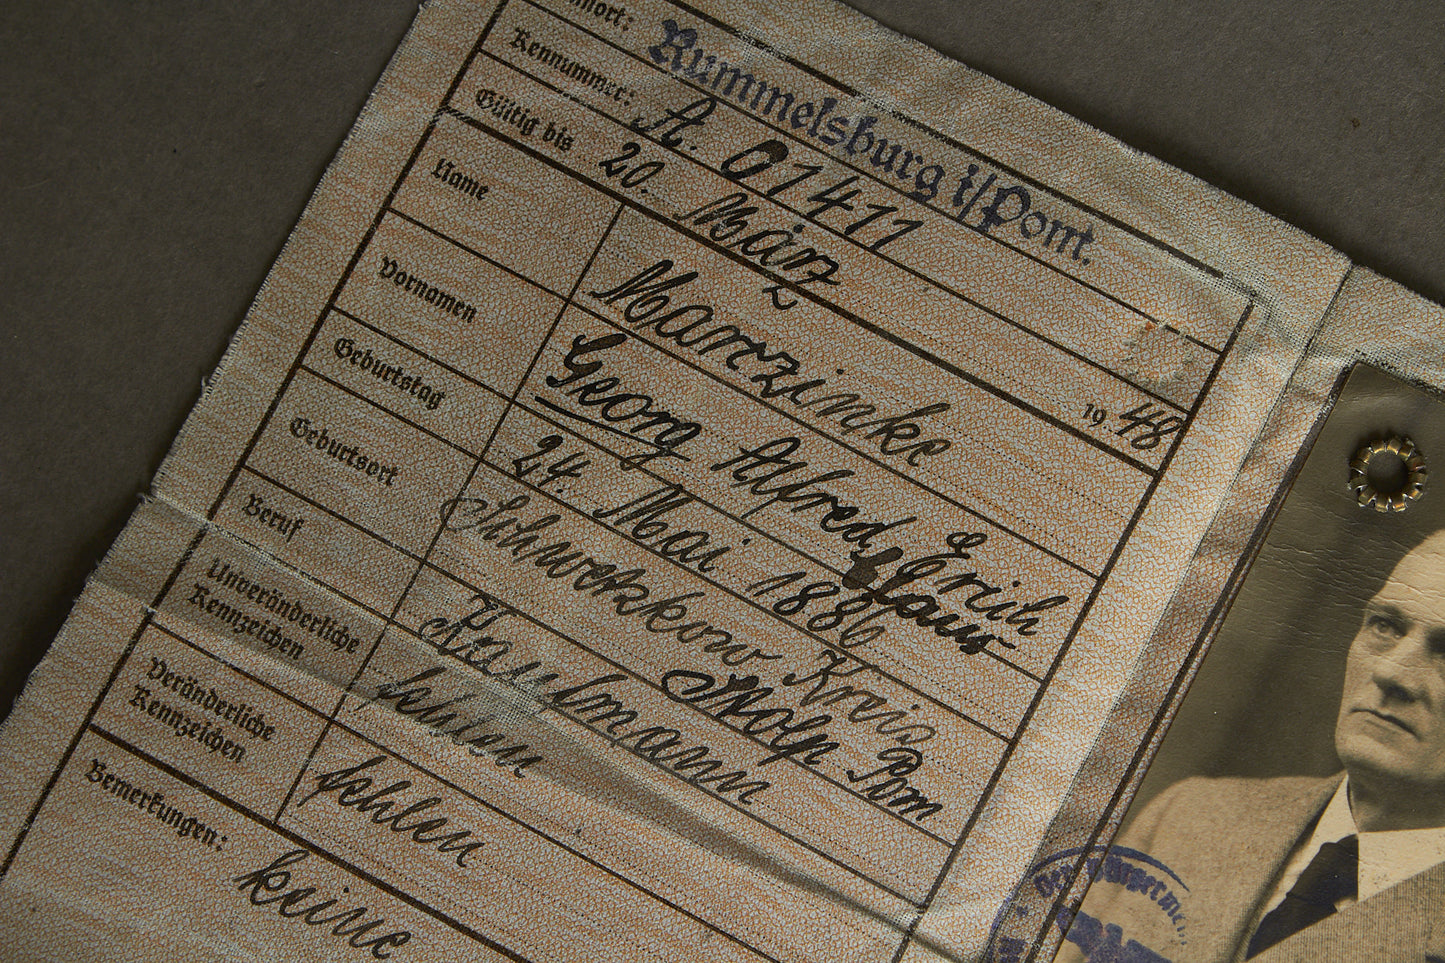 nnort: Rummelsburg i/Pom.
Kennummer: A. 01411
Gültig bis 20. März 1948
Name Marczinke
Vornamen Georg Alfred Erich
Claus
Geburtstag 24. Mai 1886
Geburtsort Schwetzkow Kreis
Stolp Pom
Beruf Kaufmann
Unveränderliche
Kennzeichen
Veränderliche fehlen
Kennzeichen
Bemerkungen: keine
Der Bürgermei